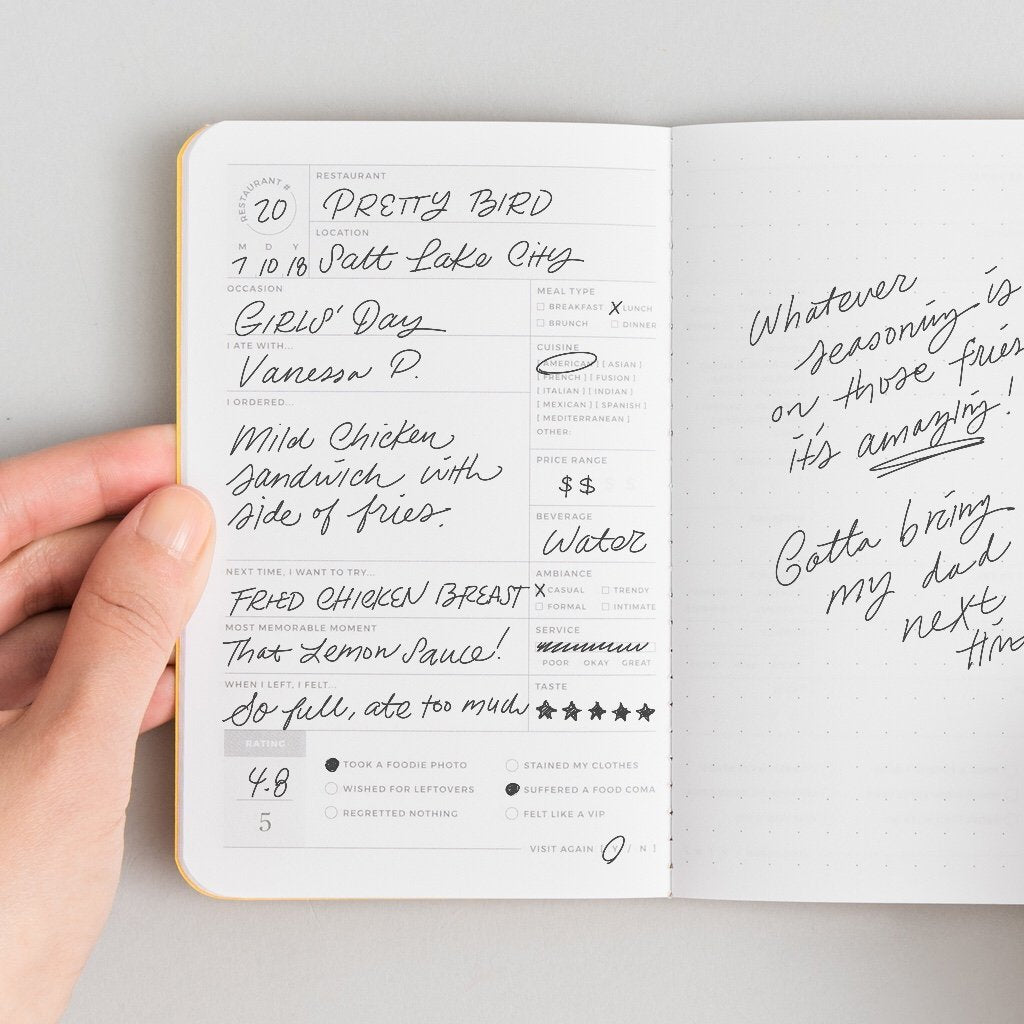 RESTAURANT #
20
RESTAURANT
PRETTY BIRD
M D Y
7 10 18
LOCATION
Salt Lake City
OCCASION
GIRLS' Day
I ATE WITH...
Vanessa P.
I ORDERED...
Mild Chicken
sandwich with
side of fries.
MEAL TYPE
BREAKFAST X LUNCH
BRUNCH DINNER
CUISINE
[ AMERICAN ] [ ASIAN ]
[ FRENCH ] [ FUSION ]
[ ITALIAN ] [ INDIAN ]
[ MEXICAN ] [ SPANISH ]
[ MEDITERRANEAN ]
OTHER:
PRICE RANGE
$ $ $ $
BEVERAGE
Water
NEXT TIME, I WANT TO TRY...
FRIED CHICKEN BREAST
AMBIANCE
X CASUAL TRENDY
FORMAL INTIMATE
MOST MEMORABLE MOMENT
That Lemon Sauce!
SERVICE
POOR OKAY GREAT
WHEN I LEFT, I FELT...
So full, ate too much
TASTE
RATING
4.8
5
TOOK A FOODIE PHOTO
WISHED FOR LEFTOVERS
REGRETTED NOTHING
STAINED MY CLOTHES
SUFFERED A FOOD COMA
FELT LIKE A VIP
VISIT AGAIN [ Y / N ]
Whatever
seasoning is
on those fries
it's amazing!
Gotta bring
my dad
next